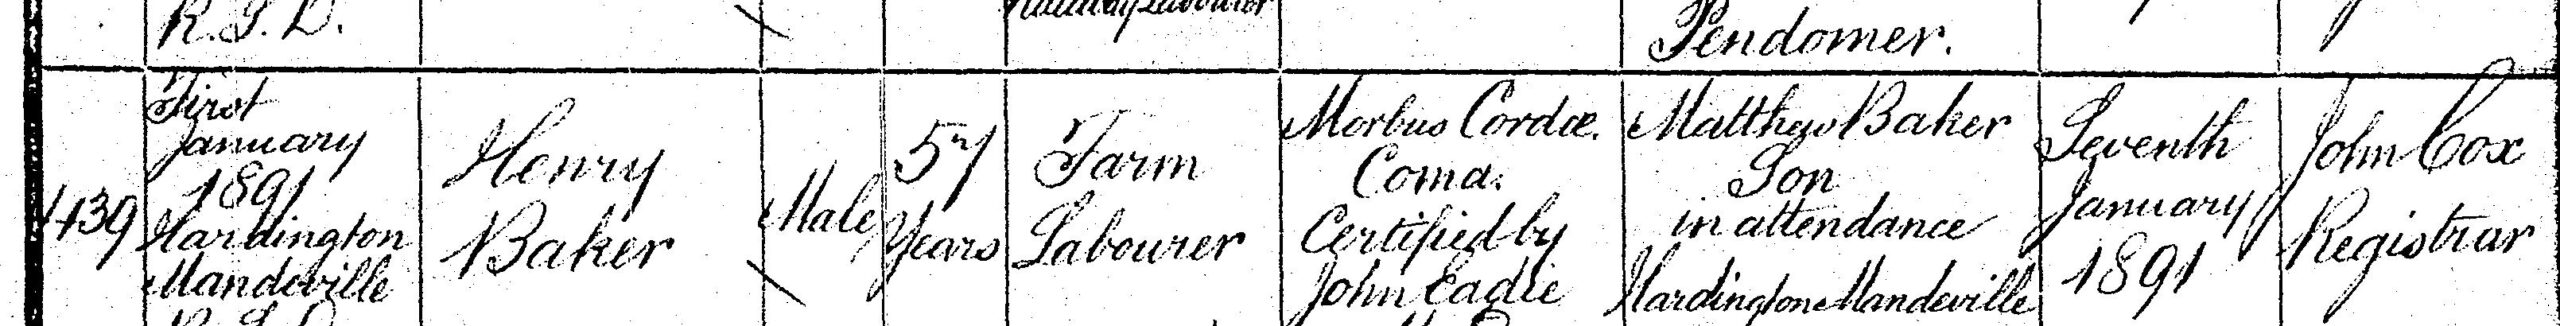 R.S.D.
Railway Labourer
Pendomer.
439
First
January
1891
Hardington
Mandeville
R.S.D.
Henry
Baker
Male
57
Years
Farm
Labourer
Morbus Cordæ.
Coma.
Certified by
John Eadie
Matthew Baker
Son
in attendance
Hardington Mandeville
Seventh
January
1891
John Cox
Registrar